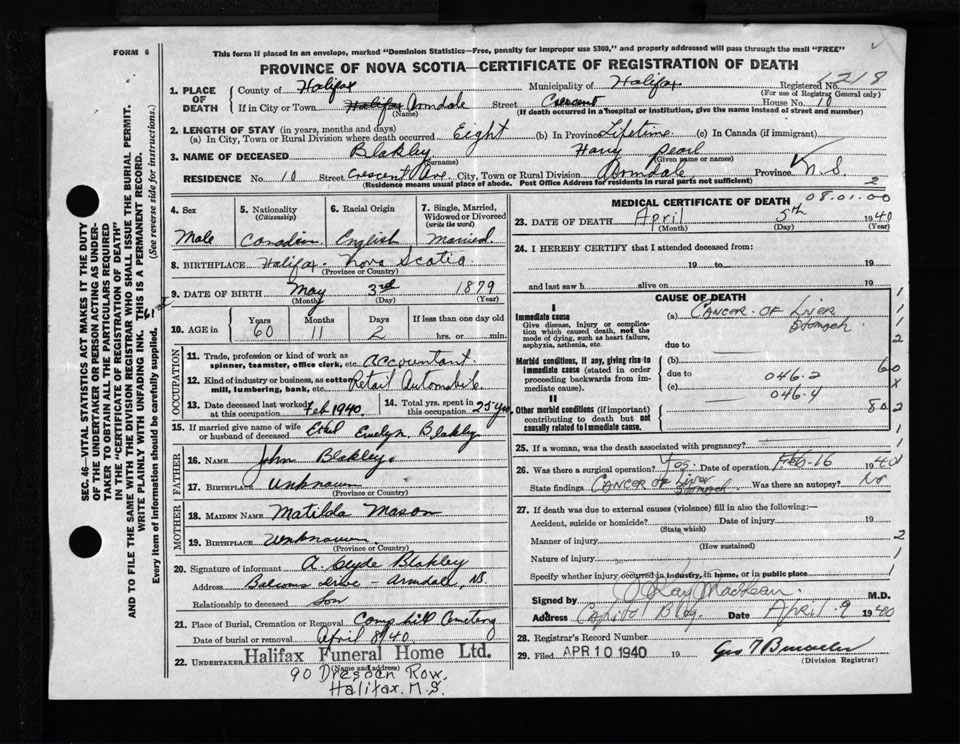 FORM 6
This form if placed in an envelope, marked "Dominion Statistics—Free, penalty for improper use $300," and properly addressed will pass through the mail "FREE"
PROVINCE OF NOVA SCOTIA—CERTIFICATE OF REGISTRATION OF DEATH
SEC. 46—VITAL STATISTICS ACT MAKES IT THE DUTY
OF THE UNDERTAKER OR PERSON ACTING AS UNDER-
TAKER TO OBTAIN ALL THE PARTICULARS REQUIRED
IN THE "CERTIFICATE OF REGISTRATION OF DEATH"
AND TO FILE THE SAME WITH THE DIVISION REGISTRAR WHO SHALL ISSUE THE BURIAL PERMIT.
WRITE PLAINLY WITH UNFADING INK. THIS IS A PERMANENT RECORD.
Every item of information should be carefully supplied. (See reverse side for instructions.)
1. PLACE OF DEATH
County of Halifax Municipality of Halifax Registered No. 1218
(For use of Registrar General only)
If in City or Town Halifax Armdale Street Crescent House No. 10
(Name) (If death occurred in a hospital or institution, give the name instead of street and number)
2. LENGTH OF STAY (in years, months and days)
(a) In City, Town or Rural Division where death occurred Eight (b) In Province Lifetime (c) In Canada (if immigrant)
3. NAME OF DECEASED Blakley Harry Pearl
(Surname) (Given name or names)
RESIDENCE No. 10 Street Crescent Ave. City, Town or Rural Division Armdale, Province N.S.
(Residence means usual place of abode. Post Office Address for residents in rural parts not sufficient) 2
4. Sex
Male
5. Nationality
(Citizenship)
Canadian
6. Racial Origin
English
7. Single, Married,
Widowed or Divorced
(write the word)
Married
8. BIRTHPLACE Halifax Nova Scotia
(Province or Country)
9. DATE OF BIRTH May 3rd 1879
(Month) (Day) (Year)
10. AGE in
Years Months Days If less than one day old
60 11 2 hrs. or min.
OCCUPATION
11. Trade, profession or kind of work as
spinner, teamster, office clerk, etc. Accountant
12. Kind of industry or business, as cotton
mill, lumbering, bank, etc. Retail Automobile
13. Date deceased last worked
at this occupation Feb 1940
14. Total yrs. spent in
this occupation 25 yrs.
15. If married give name of wife
or husband of deceased Ethel Evelyn Blakley
FATHER
16. NAME John Blakley
17. BIRTHPLACE Unknown
(Province or Country)
MOTHER
18. MAIDEN NAME Matilda Mason
19. BIRTHPLACE Unknown
(Province or Country)
20. Signature of informant A. Clyde Blakley
Address Armdale, N.S.
Relationship to deceased Son
21. Place of Burial, Cremation or Removal Camp Hill Cemetery
Date of burial or removal April 8/40
22. UNDERTAKER Halifax Funeral Home Ltd.
(Name and address)
90 Dresden Row.
Halifax. N.S.
MEDICAL CERTIFICATE OF DEATH 08.01.00
23. DATE OF DEATH April 5th 1940
(Month) (Day) (Year)
24. I HEREBY CERTIFY that I attended deceased from:
19 to 19
and last saw h alive on 19
CAUSE OF DEATH
I
Immediate cause
Give disease, injury or complica-
tion which caused death, not the
mode of dying, such as heart failure,
asphyxia, asthenia, etc.
(a) CANCER OF Liver
Stomach
due to
Morbid conditions, if any, giving rise to
immediate cause (stated in order
proceeding backwards from im-
mediate cause).
(b)
due to 046.2
(c)
046.4
II
Other morbid conditions (if important)
contributing to death but not
causally related to immediate cause.
25. If a woman, was the death associated with pregnancy?
26. Was there a surgical operation? Yes. Date of operation Feb-16 1940
State findings CANCER OF Liver Stomach Was there an autopsy? No
27. If death was due to external causes (violence) fill in also the following:—
Accident, suicide or homicide? Date of injury 19
(State which)
Manner of injury
(How sustained)
Nature of injury
Specify whether injury occurred in industry, in home, or in public place
Signed by M.D.
Address Capitol Bldg. Date April 9 1940
28. Registrar's Record Number
29. Filed APR 10 1940 19
(Division Registrar)